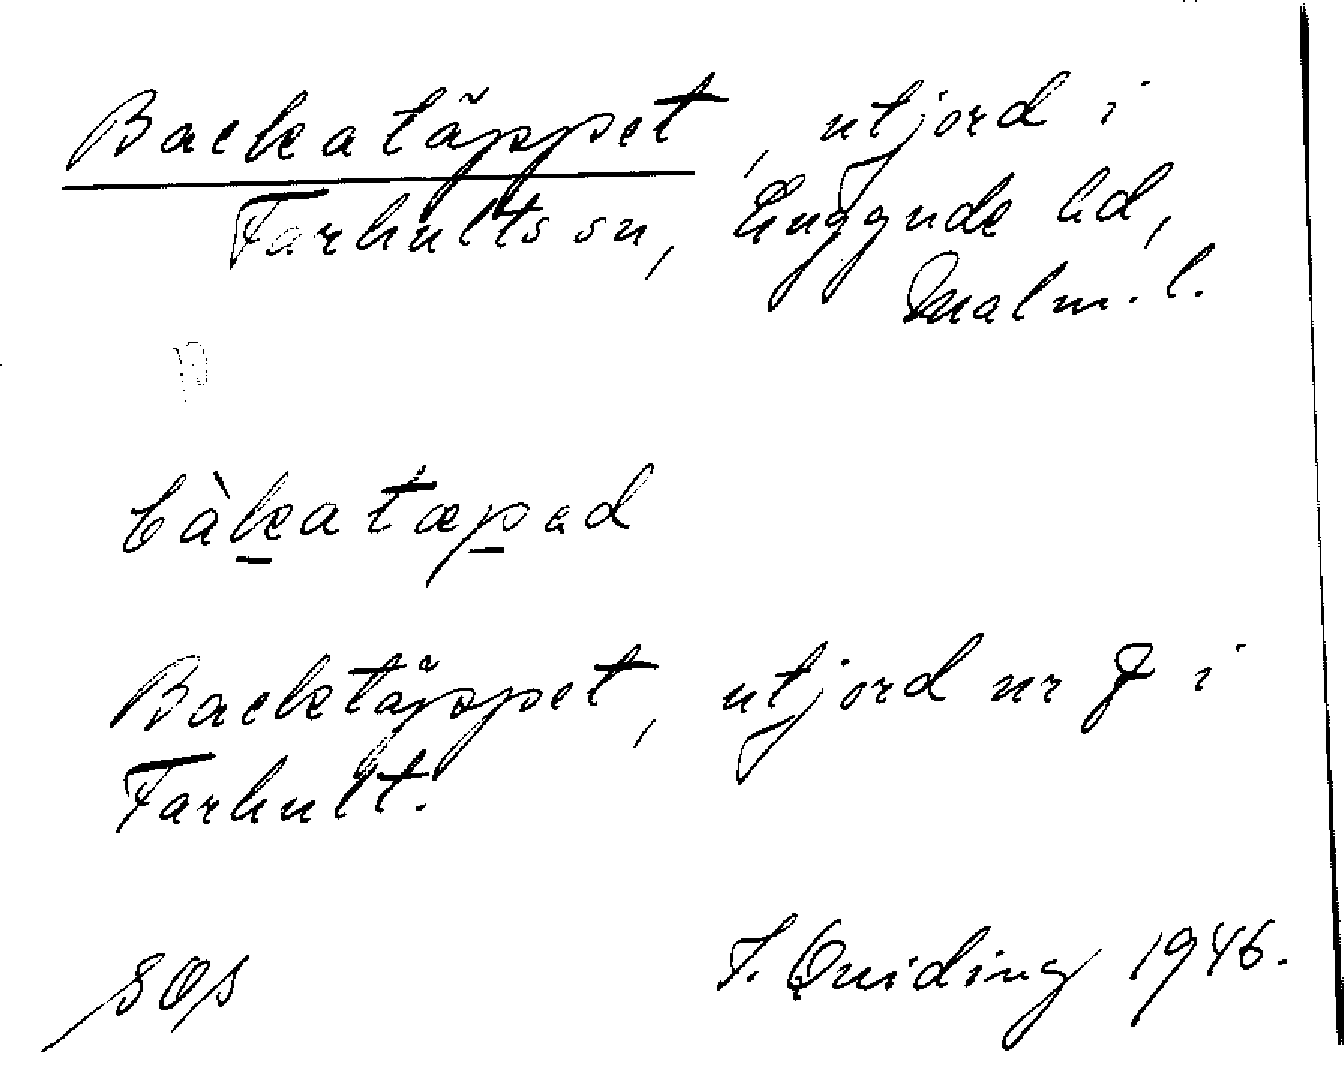 Backatäppet, utjord i
Farhults sn, Luggude hd,
Malm. l.
bàkatæpad
Backtäppet, utjord nr 7 i
Farhult.
SOS
F. Quiding 1946.